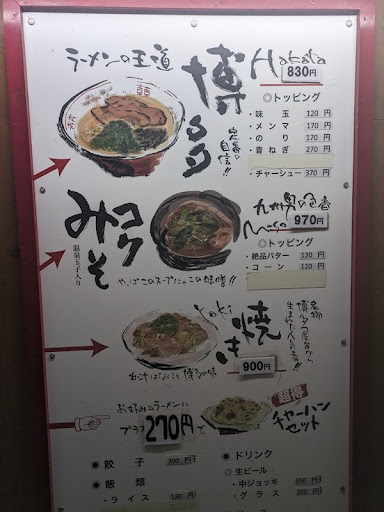 ラーメンの王道
博多
Hakata
830円
定番の自信!!
◎トッピング
・味玉 120円
・メンマ 170円
・のり 170円
・青ねぎ 270円
・チャーシュー 370円
コクみそ
温泉玉子入り
Miso
970円
やっぱこのスープにゃこの味噌!!
◎トッピング
・絶品バター 120円
・コーン 120円
yaki
焼き
900円
名物
博多屋台から
生まれた人気者!!
博多の味
お好みのラーメンに
プラス270円で
超得
チャーハン
セット
◎餃子 300円
◎飯類
・ライス 180円
◎ドリンク
◎生ビール
・中ジョッキ 550円
・グラス 350円